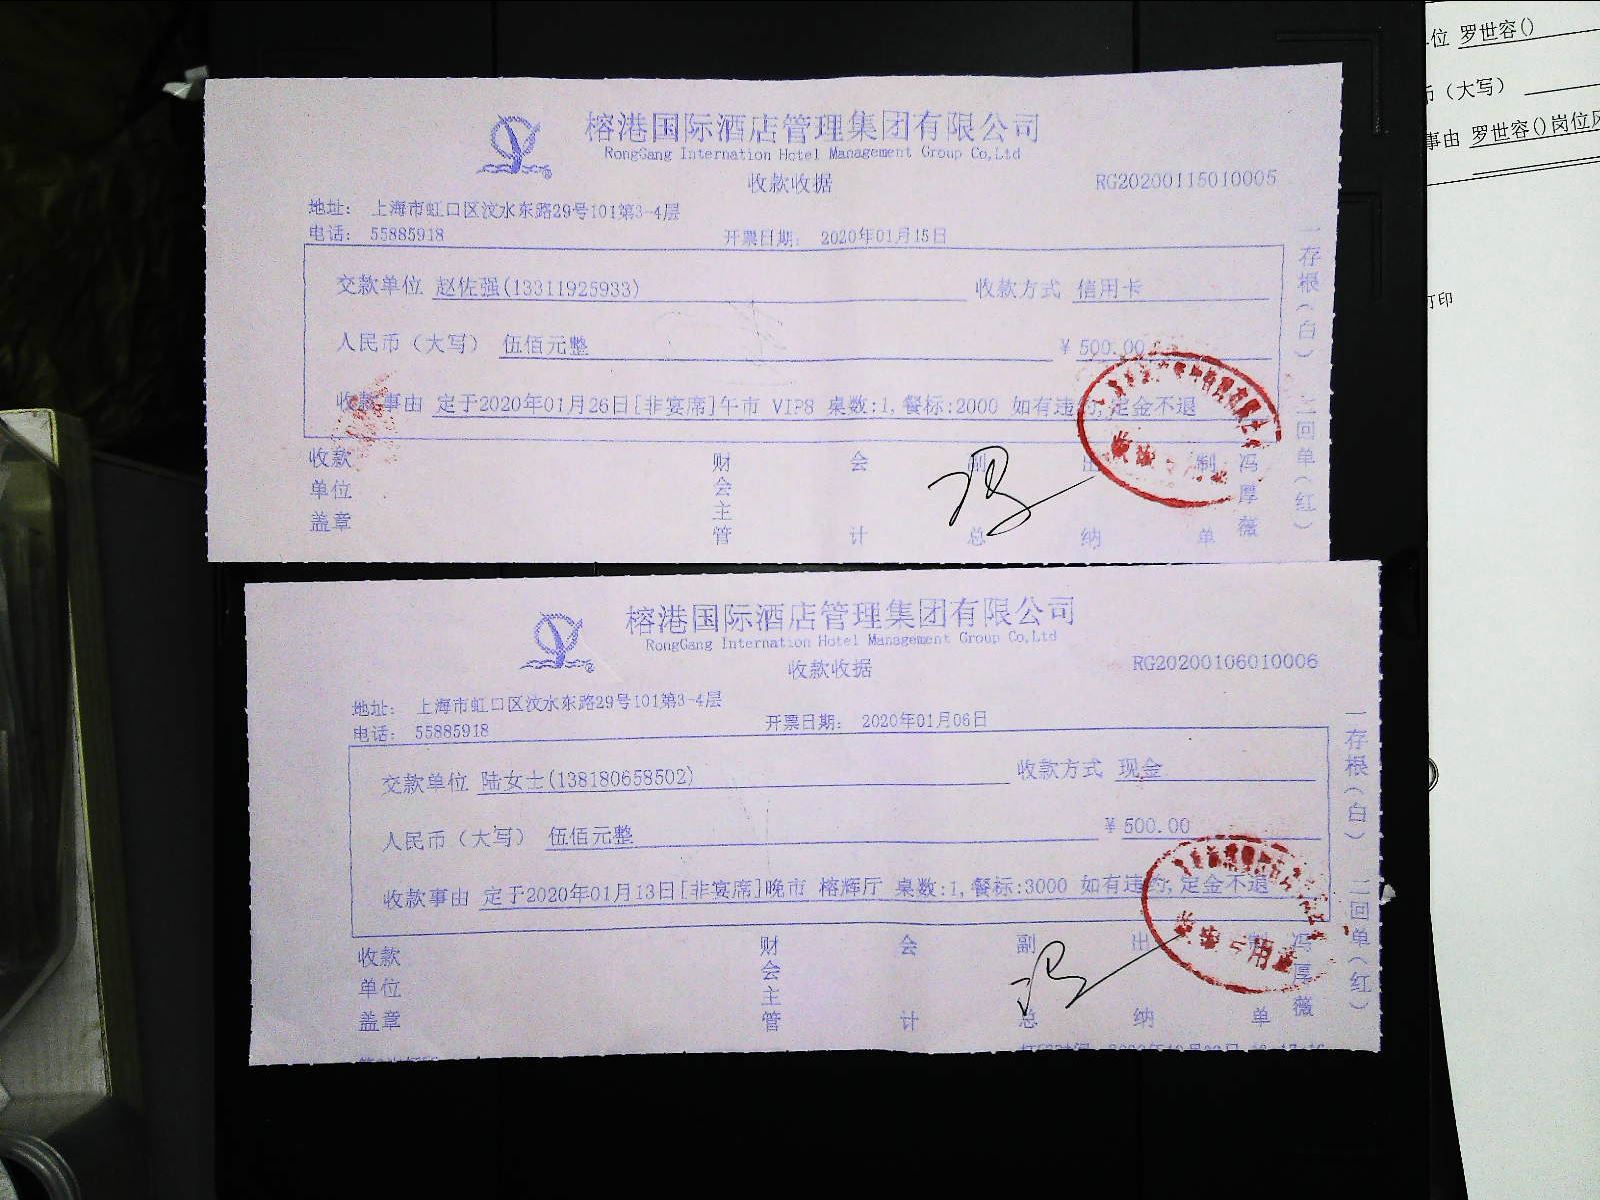 榕港国际酒店管理集团有限公司
RongGang Internation Hotel Management Group Co,Ltd
收款收据
RG20200115010005
地址： 上海市虹口区汶水东路29号101第3-4层
电话： 55885918 开票日期： 2020年01月15日
交款单位 赵佐强(13311925933) 收款方式 信用卡
人民币（大写） 伍佰元整 ￥500.00
收款事由 定于2020年01月26日[非宴席]午市 VIP8 桌数:1,餐标:2000 如有违约,定金不退
收款单位盖章 财会主管 会计 副总 出纳 制单 冯厚薇
一存根（白） 二回单（红）
榕港国际酒店管理集团有限公司
RongGang Internation Hotel Management Group Co,Ltd
收款收据
RG20200106010006
地址： 上海市虹口区汶水东路29号101第3-4层
电话： 55885918 开票日期： 2020年01月06日
交款单位 陆女士(138180658502) 收款方式 现金
人民币（大写） 伍佰元整 ￥500.00
收款事由 定于2020年01月13日[非宴席]晚市 榕辉厅 桌数:1,餐标:3000 如有违约,定金不退
收款单位盖章 财会主管 会计 副总 出纳 制单 冯厚薇
一存根（白） 二回单（红）
位 罗世容()
（大写）
事由 罗世容()岗位
打印